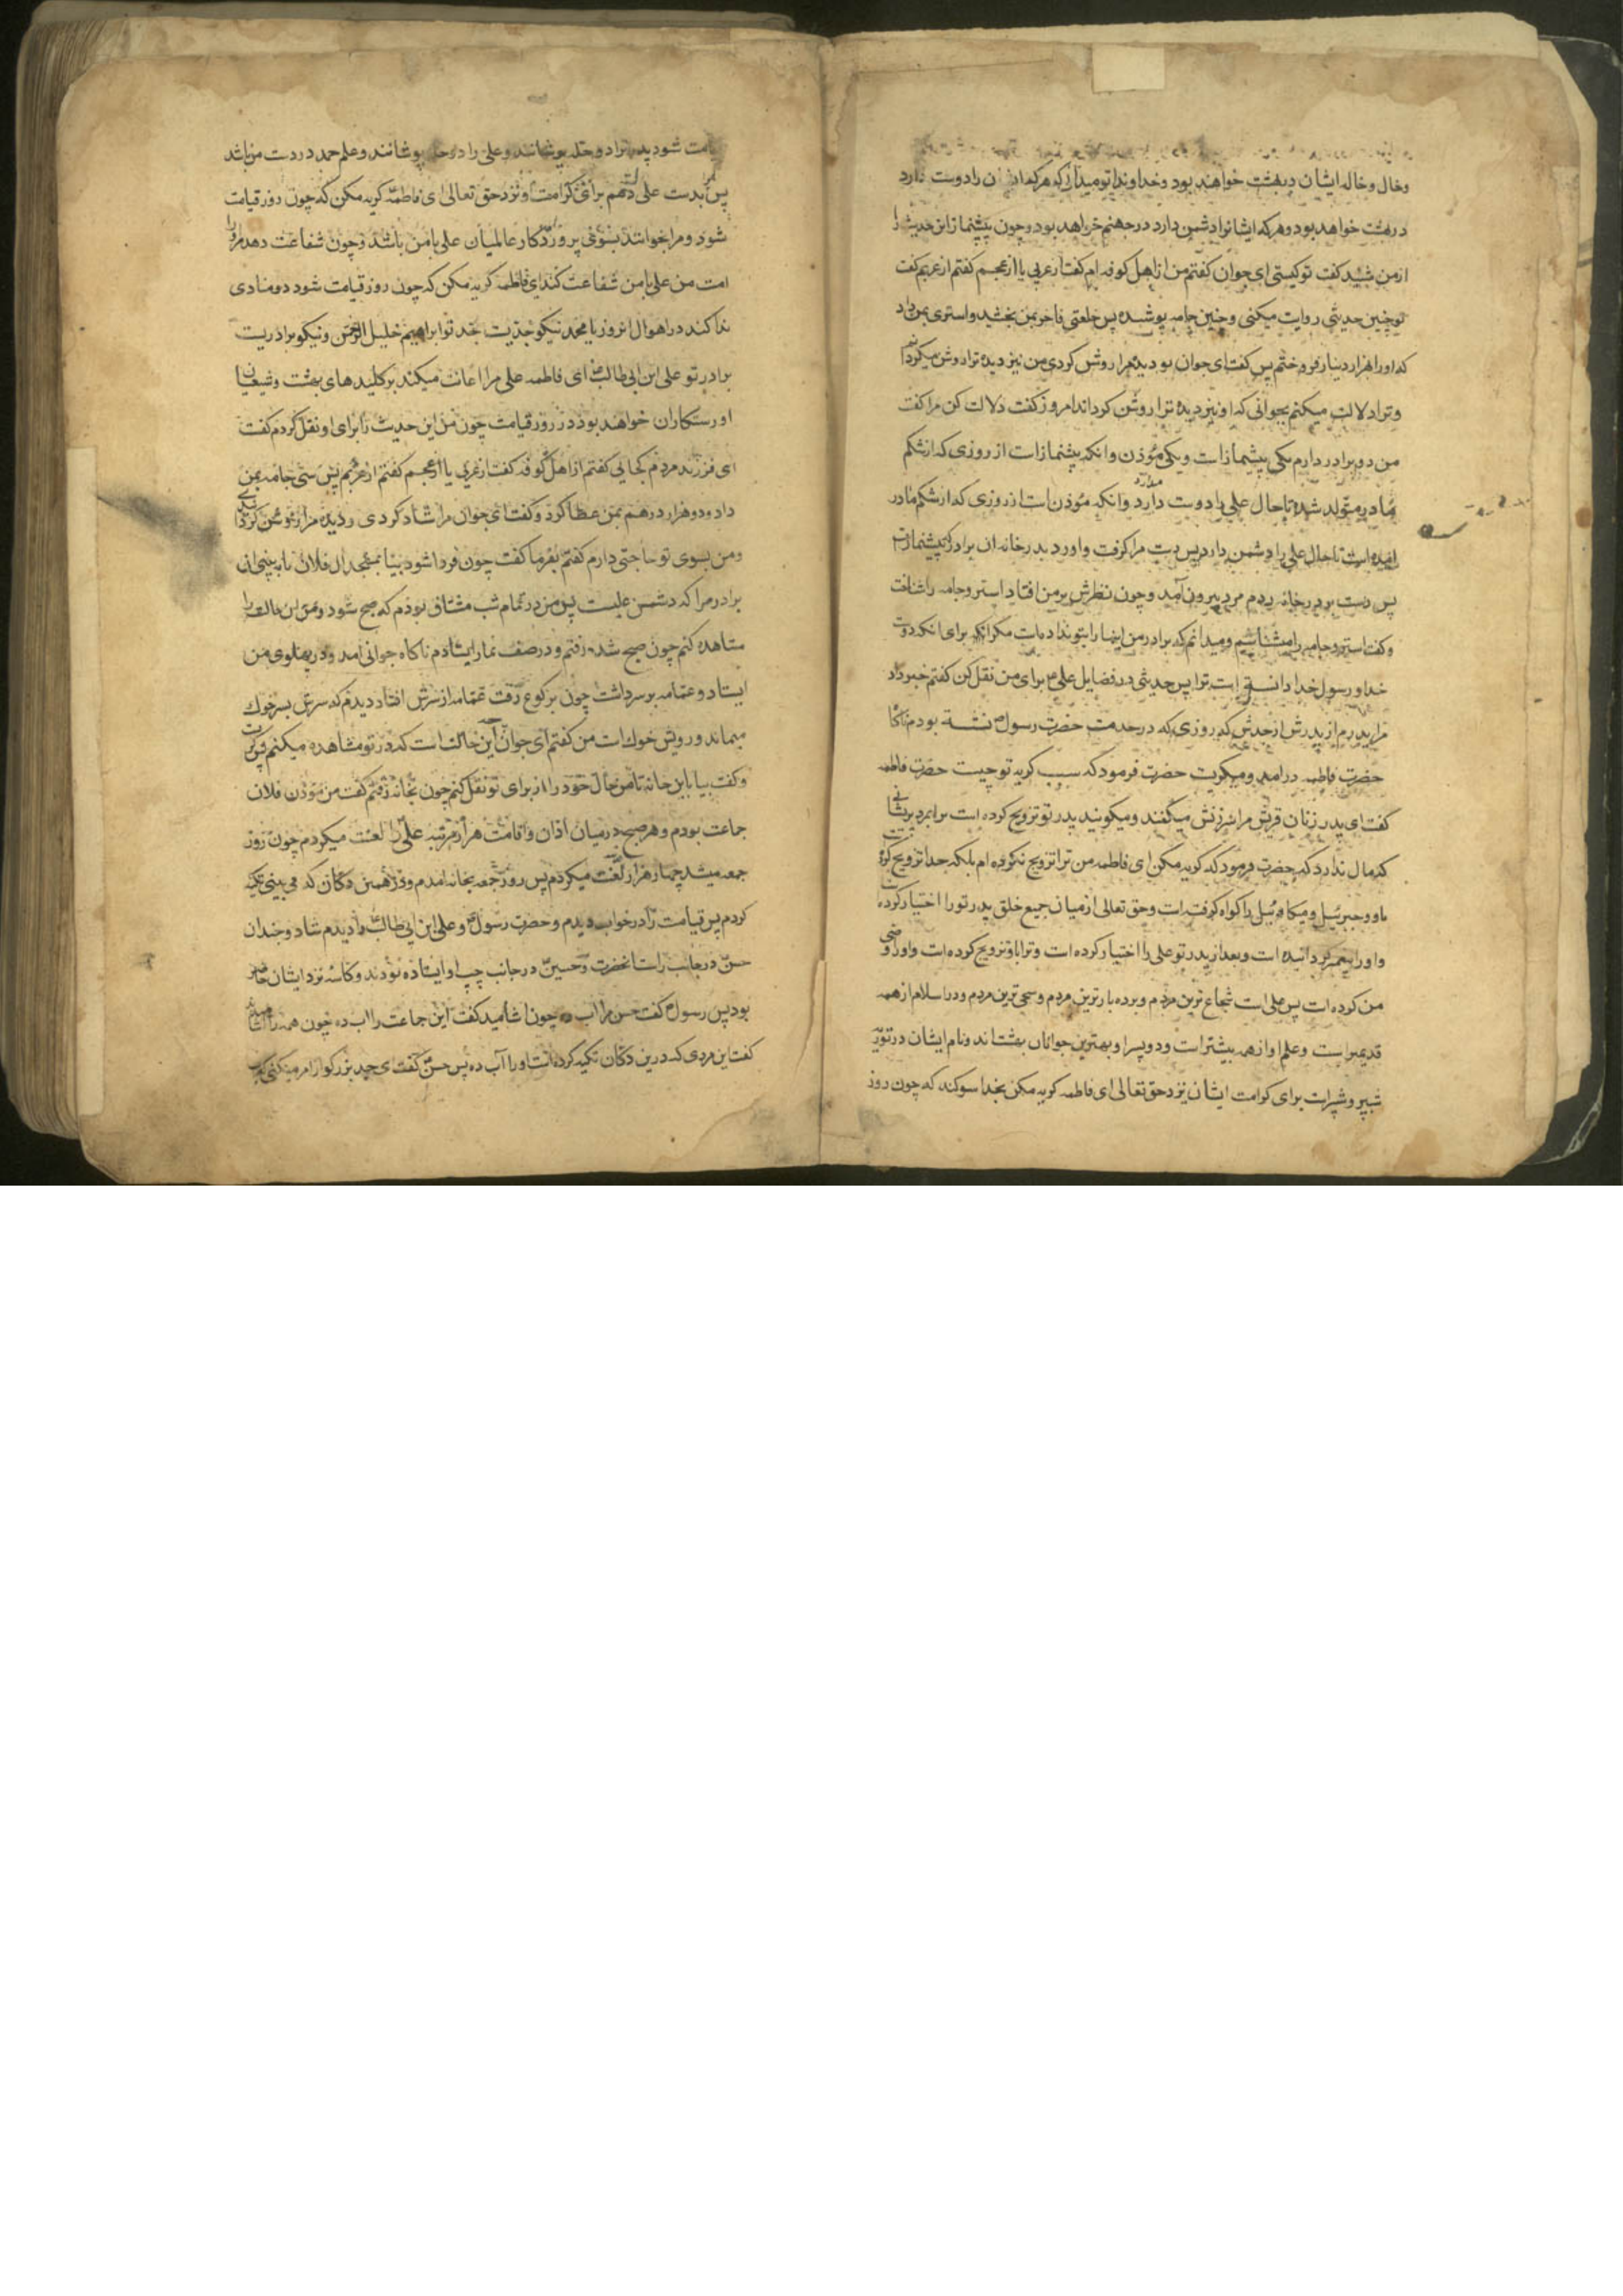 وخال وخاله ایشان در بهشت خواهند بود وخداوندا تو میدانی که هرکه ایشان را دوست دارد
در بهشت خواهد بود وهرکه ایشانرا دشمن دارد در جهنم خواهد بود وچون پیشنماز این حدیث را
از من شنید گفت تو کیستی ای جوان گفتم من از اهل کوفه ام گفت از عربی یا از عجم گفتم از عربم گفت
تو چنین حدیثی روایت میکنی وچنین جامه پوشیده پس خلعتی فاخر بمن بخشید واستری بمن داد
که اورا بهزار دینار فروختم پس گفت ای جوان دیده مرا روشن کردی من نیز دیده ترا روشن میکردانم
وترا دلالت میکنم بجوانی که او نیز دیده ترا روشن کرداند امروز گفت دلالت کن مرا گفت
من دو برادر دارم یکی پیشنماز است ویکی مؤذن وانکه پیشنماز است از روزی که از شکم
مادر متولد شده تا حال علی را دوست میدارد وانکه مؤذن است از روزی که از شکم مادر
امده است تا حال علی را دشمن دارد پس دست مرا گرفت واورد بدر خانه ان برادر که پیشنماز است
پس دست بر در خانه زدم مردی بیرون آمد وچون نظرش بر من افتاد استر وجامه را شناخت
وگفت استر وجامه را میشناسیم ومیدانم که برادر من اینها را بتو نداده است مگر انکه برای انکه دوست
خدا ورسول خدا دانسته است ترا پس حدیثی در فضایل علی برای من نقل کن گفتم خبر داد
مرا پدرم از پدرش از جدش که روزی که در خدمت حضرت رسول نشسته بودم ناگاه
حضرت فاطمه درامد ومیگریست حضرت فرمود که سبب گریه تو چیست حضرت فاطمه
گفت ای پدر زنان قریش مرا سرزنش میکنند ومیگویند پدر تو تزویج کرده است ترا بمرد پریشانی
که مال ندارد که حضرت فرمود که گریه مکن ای فاطمه من ترا تزویج نکرده ام بلکه خدا تزویج کرده
او وجبرئیل ومیکائیل را گواه گرفته است وحق تعالی از میان جمیع خلق پدر تورا اختیار کرده است
واورا پیغمبر گردانیده است وبعد از پدر تو علی را اختیار کرده است وترا باو تزویج کرده است واورا وصی
من کرده است پس علی است شجاع ترین مردم وبردبارترین مردم وسخی ترین مردم ودر اسلام از همه
قدیمتر است وعلم او از همه بیشتر است ودو پسر او بهترین جوانان بهشتاند ونام ایشان در توریة
شبیر وشبر است برای کرامت ایشان نزد حق تعالی ای فاطمه گریه مکن بخدا سوگند که چون روز
قیامت شود پدر ترا دو حله پوشانند وعلی را دو حله پوشانند وعلم حمد در دست من باشد
پس بدست علی دهم برای کرامت او نزد حق تعالی ای فاطمه گریه مکن که چون روز قیامت
شود ومرا بخوانند بسوی پروردگار عالمیان علی با من باشد وچون شفاعت دهد مرا
امت من علی با من شفاعت کند ای فاطمه گریه مکن که چون روز قیامت شود دو منادی
ندا کند در اهوال انروز یا محمد نیکو جدیست جد تو ابراهیم خلیل الرحمن ونیکو برادریست
برادر تو علی ابن ابی طالب ای فاطمه علی مرا اعانت میکند بر کلیدهای بهشت وشیعیان
او رستگاران خواهند بود در روز قیامت چون من این حدیث را برای او نقل کردم گفت
ای فرزند مردم کجایی گفتم از اهل کوفه گفت از عربی یا از عجم گفتم از عربم پس سی جامه بمن
داد ودو هزار درهم بمن عطا کرد وگفت ای جوان مرا شاد کردی ودیده مرا روشن کردی
ومن بسوی تو حاجتی دارم گفتم بفرما گفت چون فردا شود بیا بمسجد ال فلان تا ببینی ان
برادر مرا که دشمن علیست پس من در تمام شب مشتاق بودم که صبح شود ومن ان مخالف را
مشاهده کنم چون صبح شد رفتم ودر صف نماز ایستادم ناگاه جوانی امد ودر پهلوی من
ایستاد وعمامه بر سر داشت چون برکوع رفت عمامه از سرش افتاد دیدم که سرش بسر خوک
میماند ورویش خوک است من گفتم ای جوان این چه حالت است که در تو مشاهده میکنم او گریست
وگفت بیا باین خانه تا من حال خود را از برای تو نقل کنم چون بخانه رفتم گفت من مؤذن فلان
جماعت بودم وهر صبح در میان اذان واقامت هزار مرتبه علی را لعنت میکردم چون روز
جمعه میشد چهار هزار لعنت میکردم پس روز جمعه بخانه امدم ودر همین دکان که می بینی تکیه
کردم پس قیامت را در خواب دیدم وحضرت رسول وعلی ابن ابی طالب را دیدم شاد وخندان
حسن در جانب راست انحضرت وحسین در جانب چپ او ایستاده بودند وکاسه نزد ایشان حاضر
بود پس رسول گفت حسن مرا اب ده چون اشامید گفت این جماعت را اب ده چون همه را اشامید
گفت این مردی که در ین دکان تکیه کرده است اورا آب ده پس حسن گفت ای جد بزرگوار امر میکنی که